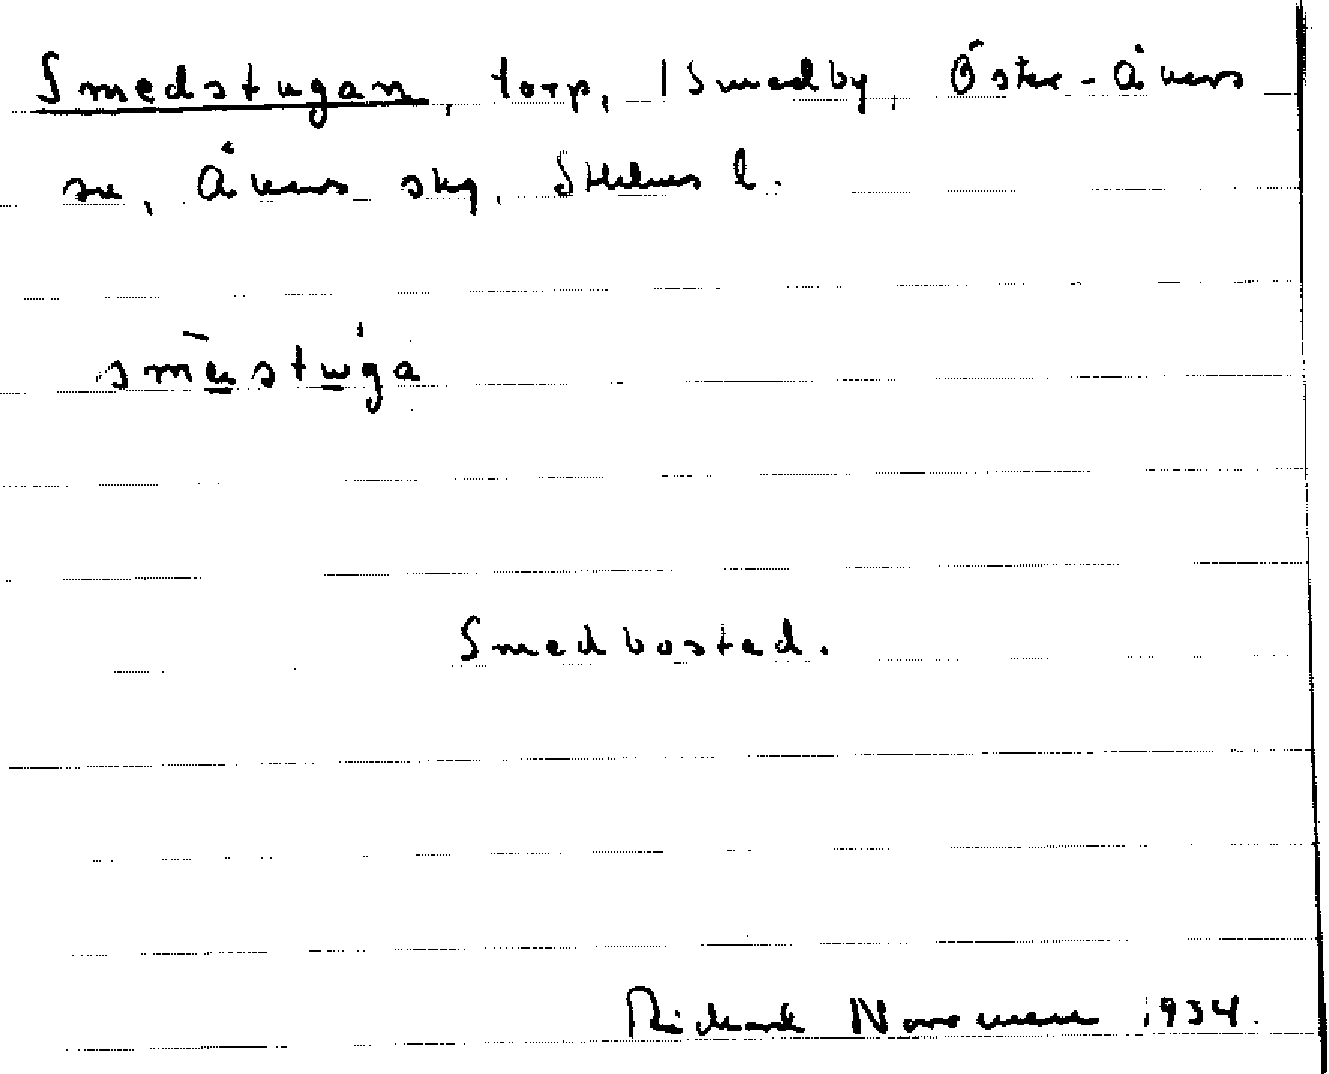 Smedstugan, torp, 1 Smedby, Öster-Åkers
sn, Åkers skg, Sthlms l.
smēstùga
Smedbostad.
Richard Norrman 1934.